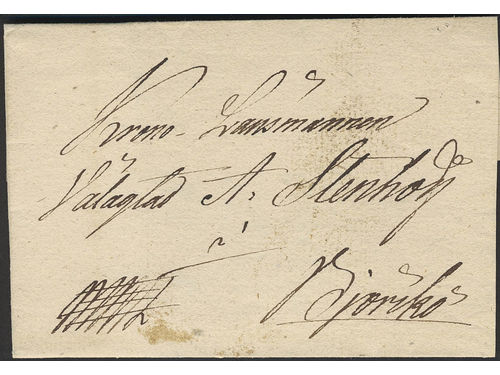 Krono-Länsmannen
Välagtad A: Stenhoff
i
Björkö